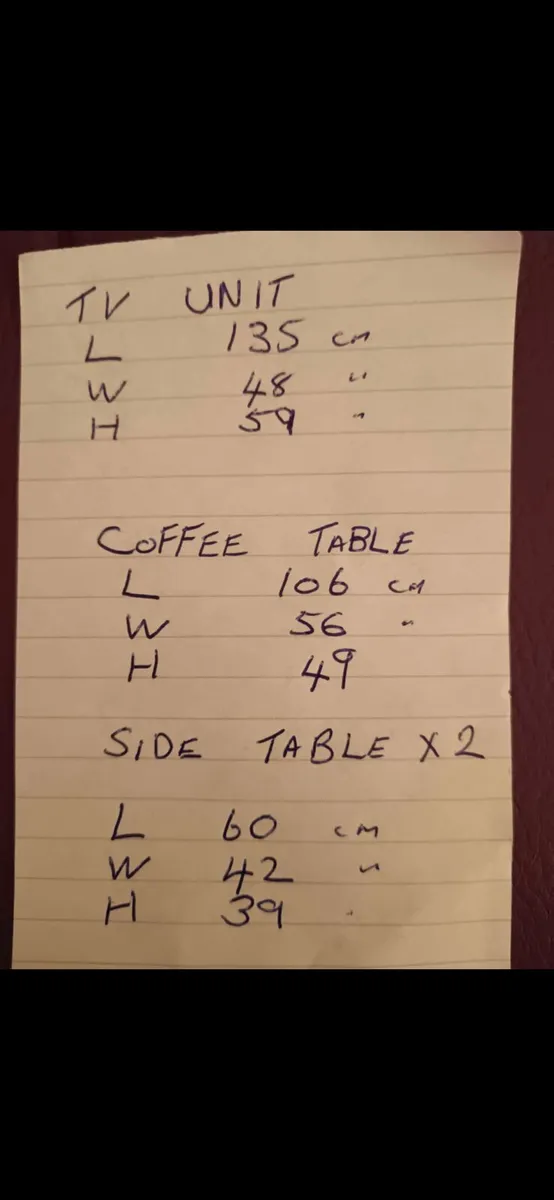 TV UNIT
L 135 cm
W 48 "
H 59 "
COFFEE TABLE
L 106 cm
W 56 "
H 49
SIDE TABLE X 2
L 60 cm
W 42 "
H 39 "